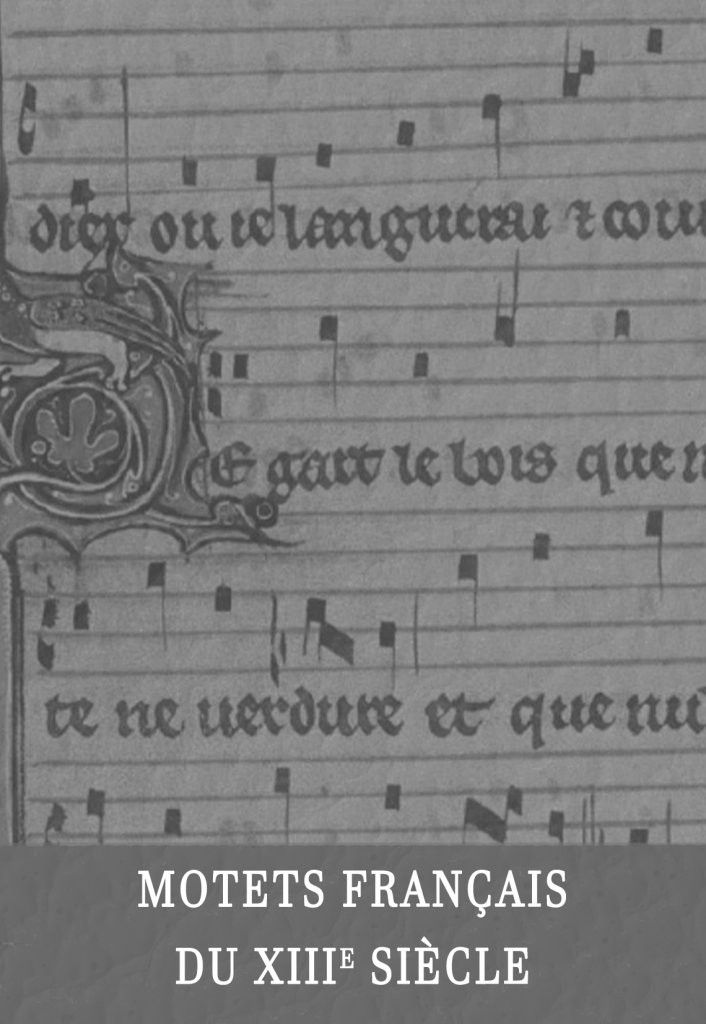 dier ou ie languirai ⁊ cou
E gart le bois que n
te ne uerdure et que nu
MOTETS FRANÇAIS
DU XIIIᴱ SIÈCLE